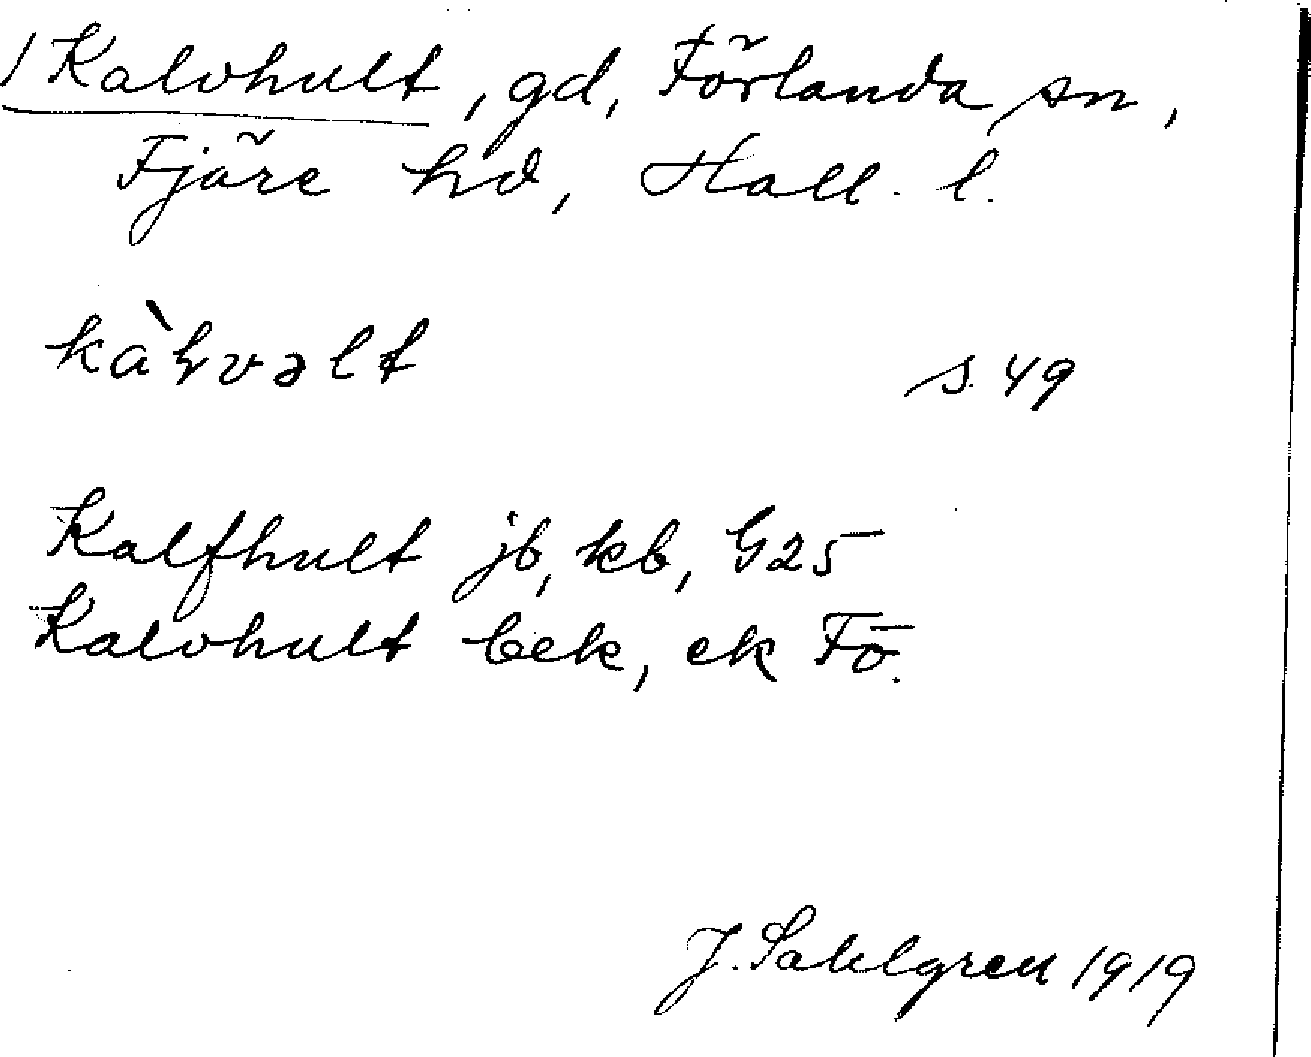 1 Kalvhult, gd, Förlanda sn,
Fjäre hd, Hall. l.
kàɫvəlt s. 49
Kalfhult jb, kb, G25
Kalvhult bek, ek Fö.
J. Sahlgren 1919